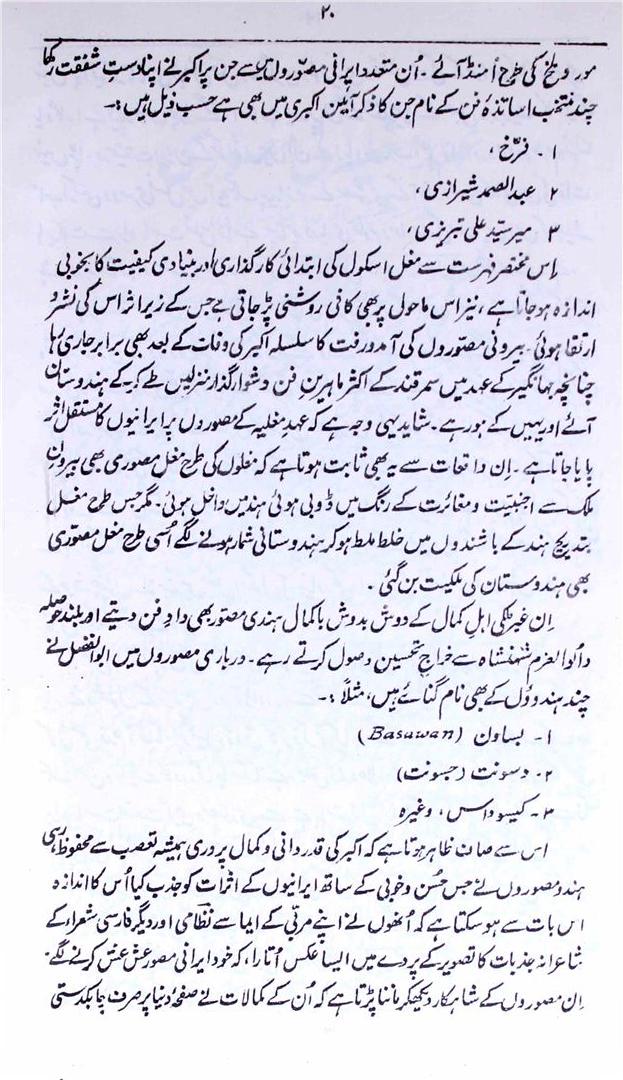 ۲۰
مور و ملخ کی طرح اُمنڈ آئے۔ اُن متعدد ایرانی مصوّروں میں سے جن پر اکبر نے اپنا دستِ شفقت رکھا
چند منتخب اساتذۂ فن کے نام جن کا ذکر آئین اکبری میں بھی ہے حسب ذیل ہیں:۔
۱۔ فرّخ،
۲ عبدالصمد شیرازی،
۳ میر سیّد علی تبریزی،
اِس مختصر فہرست سے مغل اسکول کی ابتدائی کارگذاری اور بنیادی کیفیت کا بخوبی
اندازہ ہو جاتا ہے، نیز اس ماحول پر بھی کافی روشنی پڑ جاتی ہے جس کے زیر اثر اس کی نشو و
ارتقا ہوئی۔ بیرونی مصوّروں کی آمد و رفت کا سلسلہ اکبر کی وفات کے بعد بھی برابر جاری رہا
چنانچہ جہانگیر کے عہد میں سمرقند کے اکثر ماہرینِ فن دشوار گذار منزلیں طے کر کے ہندوستان
آئے اور یہیں کے ہو رہے۔ شاید یہی وجہ ہے کہ عہدِ مغلیہ کے مصوروں پر ایرانیوں کا مستقل اثر
پایا جاتا ہے۔ اِن واقعات سے یہ بھی ثابت ہوتا ہے کہ مغلوں کی طرح مغل مصوری بھی بیرونِ
ملک سے اجنبیت و مغائرت کے رنگ میں ڈوبی ہوئی ہند میں داخل ہوئی۔ مگر جس طرح مغل
بتدریج ہند کے باشندوں میں خلط ملط ہو کر ہندوستانی شمار ہونے لگے اُسی طرح مغل مصوّری
بھی ہندوستان کی ملکیت بن گئی۔
اِن غیر ملکی اہلِ کمال کے دوش بدوش باکمال ہندی مصوّر بھی دادِ فن دیتے اور بلند حوصلہ
و اُلوالعزم شہنشاہ سے خراجِ تحسین وصول کرتے رہے۔ درباری مصوروں میں ابوالفضل نے
چند ہندوؤں کے بھی نام گنائے ہیں، مثلاً:۔
۱۔ بساون (Basawan)
۲۔ دسونت (جسونت)
۳۔ کیسو داس، وغیرہ
اس سے صاف ظاہر ہوتا ہے کہ اکبر کی قدر دانی و کمال پروری ہمیشہ تعصب سے محفوظ رہی،
ہندو مصوروں نے جس حُسن و خوبی کے ساتھ ایرانیوں کے اثرات کو جذب کیا اُس کا اندازہ
اس بات سے ہو سکتا ہے کہ اُنھوں نے اپنے مربّی کے ایما سے نظامی اور دیگر فارسی شعراء کے
شاعرانہ جذبات کا تصویر کے پردے میں ایسا عکس اُتارا، کہ خود ایرانی مصور عش عش کرنے لگے۔
اِن مصوروں کے شاہکار دیکھکر ماننا پڑتا ہے کہ اُن کے کمالات نے صفحۂ دنیا پر صرف چابکدستی